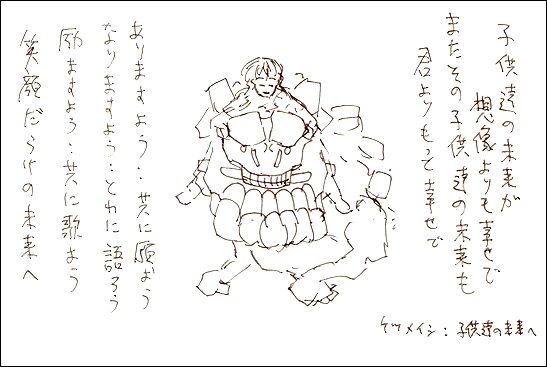 子供達の未来が
想像よりも幸せで
またその子供達の未来も
君よりもって幸せで
ケツメイシ：子供達の未来へ
ありますよう‥共に願おう
なりますよう‥とわに語ろう
励ますよう‥共に歌おう
笑顔だらけの未来へ